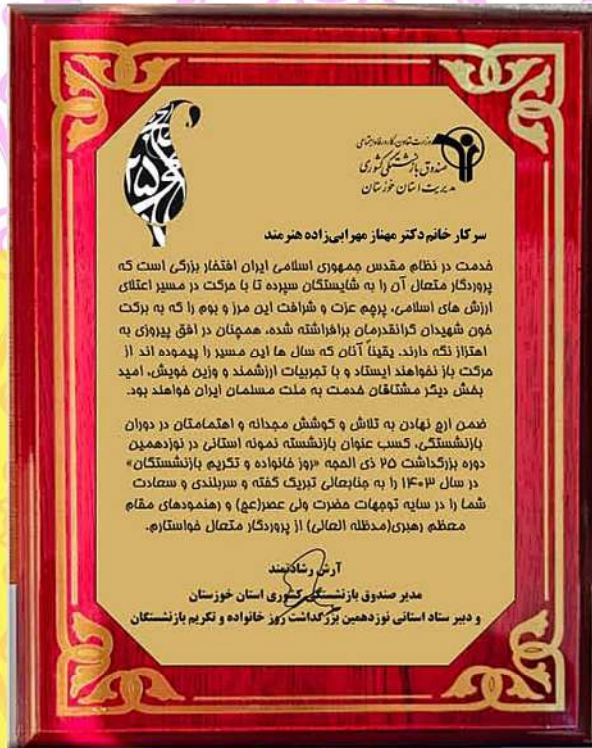 وزارت تعاون، کار و رفاه اجتماعی
صندوق بازنشستگی کشوری
مدیریت استان خوزستان
۲۵
سرکار خانم دکتر مهناز مهرابی‌زاده هنرمند
خدمت در نظام مقدس جمهوری اسلامی ایران افتخار بزرگی است که
پروردگار متعال آن را به شایستگان سپرده تا با حرکت در مسیر اعتلای
ارزش های اسلامی، پرچم عزت و شرافت این مرز و بوم را که به برکت
خون شهیدان گرانقدرمان برافراشته شده، همچنان در افق پیروزی به
اهتزاز نگه دارند. یقیناً آنان که سال ها این مسیر را پیموده اند از
حرکت باز نخواهند ایستاد و با تجربیات ارزشمند و وزین خویش، امید
بخش دیگر مشتاقان خدمت به ملت مسلمان ایران خواهند بود.
ضمن ارج نهادن به تلاش و کوشش مجدانه و اهتمامتان در دوران
بازنشستگی، کسب عنوان بازنشسته نمونه استانی در نوزدهمین
دوره بزرگداشت ۲۵ ذی الحجه «روز خانواده و تکریم بازنشستگان»
در سال ۱۴۰۳ را به جنابعالی تبریک گفته و سربلندی و سعادت
شما را در سایه توجهات حضرت ولی عصر(عج) و رهنمودهای مقام
معظم رهبری(مدظله العالی) از پروردگار متعال خواستارم.
آرش رشادتمند
مدیر صندوق بازنشستگی کشوری استان خوزستان
و دبیر ستاد استانی نوزدهمین بزرگداشت روز خانواده و تکریم بازنشستگان